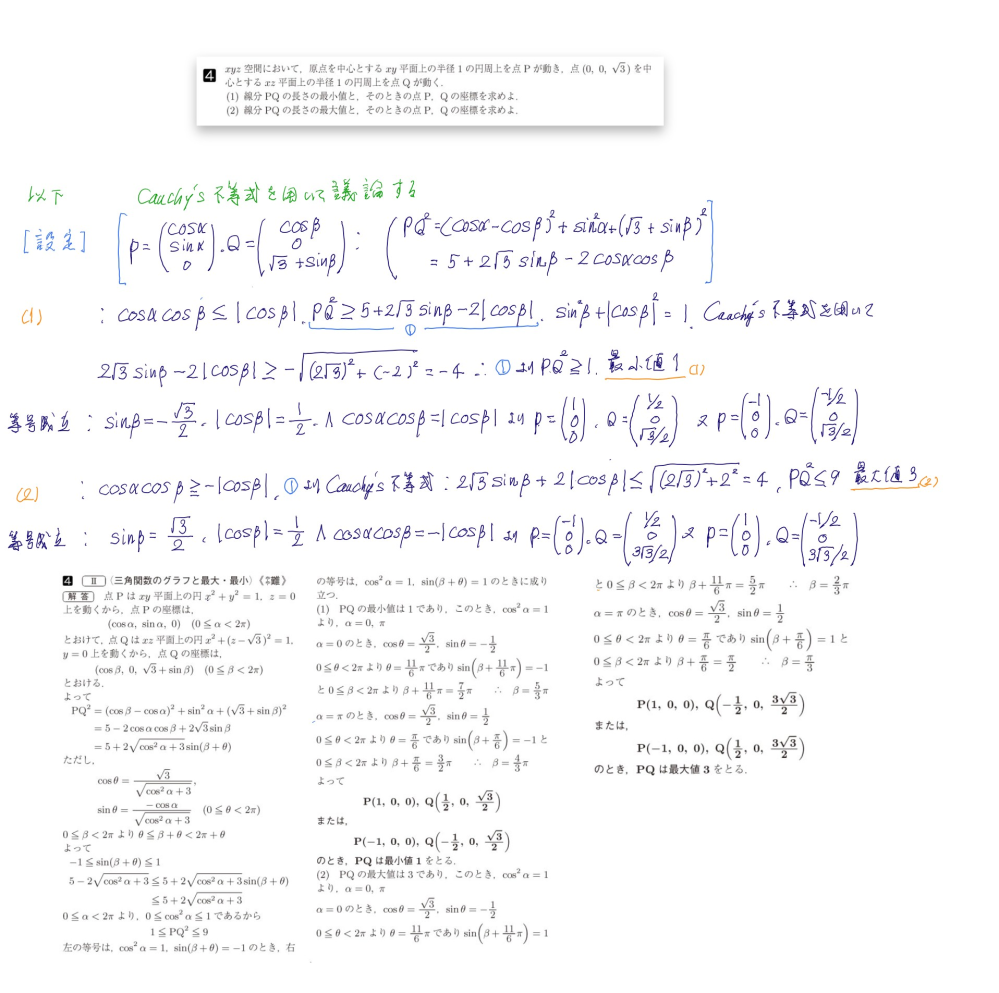 4 xyz 空間において，原点を中心とする xy 平面上の半径 1 の円周上を点 P が動き，点 (0, 0, √3) を中
心とする xz 平面上の半径 1 の円周上を点 Q が動く．
(1) 線分 PQ の長さの最小値と，そのときの点 P，Q の座標を求めよ．
(2) 線分 PQ の長さの最大値と，そのときの点 P，Q の座標を求めよ．
以下 Cauchy's 不等式を用いて議論する
[設定] [P=(cosα sinα 0), Q=(cosβ 0 √3+sinβ) : (PQ²=(cosα-cosβ)²+sin²α+(√3+sinβ)²
=5+2√3 sinβ-2cosαcosβ]
(1) : cosαcosβ≤|cosβ|, PQ²≥5+2√3 sinβ-2|cosβ|, sin²β+|cosβ|²=1, Cauchy's 不等式を用いて
①
2√3 sinβ-2|cosβ|≥-√((2√3)²+(-2)²)=-4 ∴ ①より PQ²≥1, 最小値 1 (1)
等号成立 : sinβ=-√3/2, |cosβ|=1/2, ∧ cosαcosβ=|cosβ| より P=(1 0 0), Q=(1/2 0 √3/2) 又 P=(-1 0 0), Q=(-1/2 0 √3/2)
(2) : cosαcosβ≥-|cosβ|, ①より Cauchy's 不等式 : 2√3 sinβ+2|cosβ|≤√((2√3)²+2²)=4, PQ²≤9 最大値 3 (2)
等号成立 : sinβ=√3/2, |cosβ|=1/2 ∧ cosαcosβ=-|cosβ| より P=(-1 0 0), Q=(1/2 0 3√3/2) 又 P=(1 0 0), Q=(-1/2 0 3√3/2)
4 II 〈三角関数のグラフと最大・最小〉《やや難》
解答 点 P は xy 平面上の円 x²+y²=1，z=0
上を動くから，点 P の座標は，
(cosα, sinα, 0) (0≦α<2π)
とおけて，点 Q は xz 平面上の円 x²+(z-√3)²=1，
y=0 上を動くから，点 Q の座標は，
(cosβ, 0, √3+sinβ) (0≦β<2π)
とおける．
よって
PQ²=(cosβ-cosα)²+sin²α+(√3+sinβ)²
=5-2cosαcosβ+2√3sinβ
=5+2√(cos²α+3)sin(β+θ)
ただし，
cosθ=√3/√(cos²α+3)，
sinθ=-cosα/√(cos²α+3) (0≦θ<2π)
0≦β<2π より θ≦β+θ<2π+θ
よって
-1≦sin(β+θ)≦1
5-2√(cos²α+3)≦5+2√(cos²α+3)sin(β+θ)
≦5+2√(cos²α+3)
0≦α<2π より，0≦cos²α≦1 であるから
1≦PQ²≦9
左の等号は，cos²α=1，sin(β+θ)=-1 のとき，右
の等号は，cos²α=1，sin(β+θ)=1 のときに成り
立つ．
(1) PQ の最小値は 1 であり，このとき，cos²α=1
より，α=0, π
α=0 のとき，cosθ=√3/2，sinθ=-1/2
0≦θ<2π より θ=11/6π であり sin(β+11/6π)=-1
と 0≦β<2π より β+11/6π=7/2π ∴ β=5/3π
α=π のとき，cosθ=√3/2，sinθ=1/2
0≦θ<2π より θ=π/6 であり sin(β+π/6)=-1 と
0≦β<2π より β+π/6=3/2π ∴ β=4/3π
よって
P(1, 0, 0), Q(1/2, 0, √3/2)
または，
P(-1, 0, 0), Q(-1/2, 0, √3/2)
のとき，PQ は最小値 1 をとる．
(2) PQ の最大値は 3 であり，このとき，cos²α=1
より，α=0, π
α=0 のとき，cosθ=√3/2，sinθ=-1/2
0≦θ<2π より θ=11/6π であり sin(β+11/6π)=1
と 0≦β<2π より β+11/6π=5/2π ∴ β=2/3π
α=π のとき，cosθ=√3/2，sinθ=1/2
0≦θ<2π より θ=π/6 であり sin(β+π/6)=1 と
0≦β<2π より β+π/6=π/2 ∴ β=π/3
よって
P(1, 0, 0), Q(-1/2, 0, 3√3/2)
または，
P(-1, 0, 0), Q(1/2, 0, 3√3/2)
のとき，PQ は最大値 3 をとる．